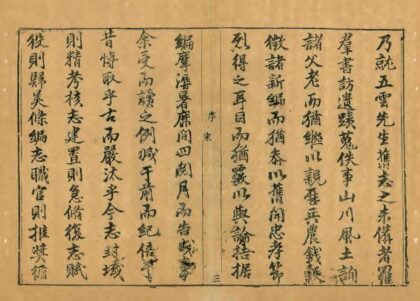 乃就五雲先生舊志之未備者羅
羣書訪遺蹟蒐佚事山川風土詢
諸父老而猶繼以親歷兵農錢穀
徵諸新編而猶叅以舊聞忠孝節
烈得之耳目而猶覈以輿論拮据
序 宋 三
編摩溽暑靡間四閱月而告竣
余受而讀之例減于前而紀倍于
昔博取乎古而嚴汰乎今志封域
則精考核志建置則急脩復志賦
役則歸美條編志職官則推奬循